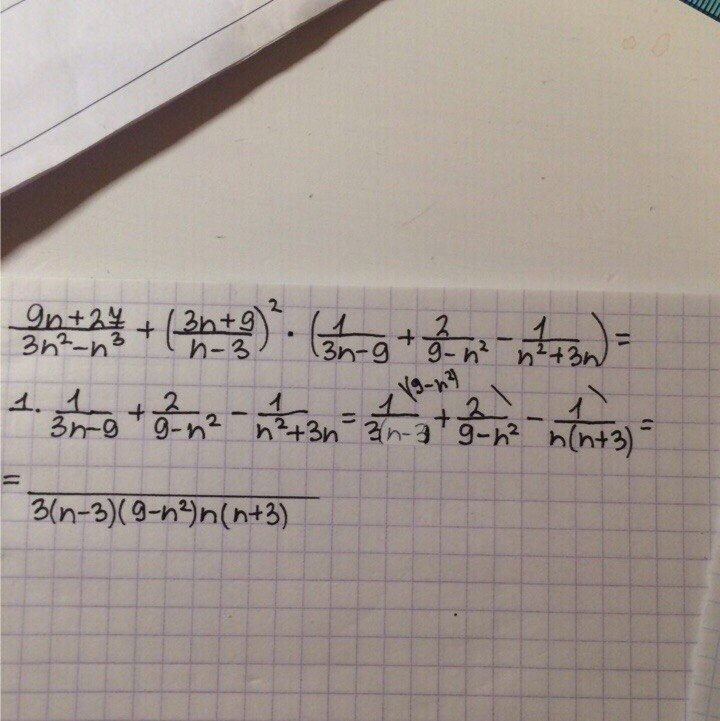 (9n+27)/(3n²-n³) + ((3n+9)/(n-3))² · (1/(3n-9) + 2/(9-n²) - 1/(n²+3n)) =
1. 1/(3n-9) + 2/(9-n²) - 1/(n²+3n) = 1\(9-n²)/(3(n-3)) + 2\/(9-n²) - 1\/(n(n+3)) =
= /(3(n-3)(9-n²)n(n+3))